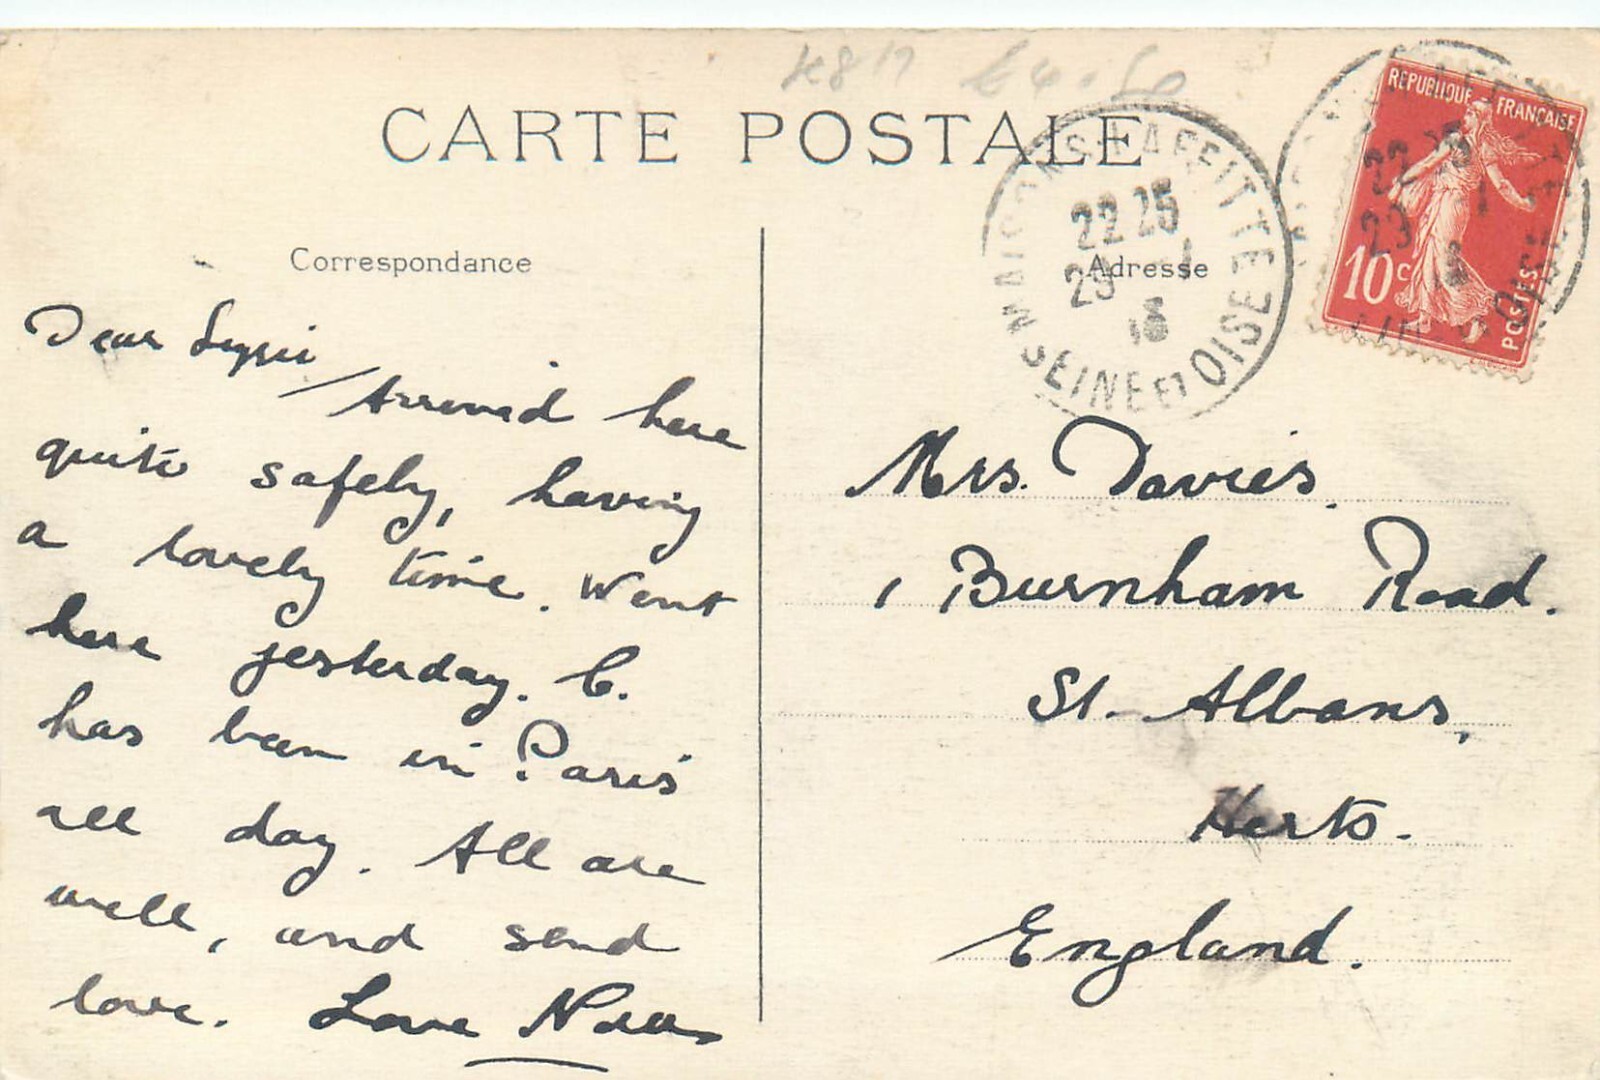 CARTE POSTALE
Correspondance
Adresse
MAISONS-LAFFITTE
22 25
SEINE ET OISE
REPUBLIQUE FRANÇAISE
10c
POSTES
Dear
Arrived here
quite safely, having
a lovely time. Went
here yesterday. C.
has been in Paris
all day. All are
well, and send
love. Love
Mrs. Davies.
1 Burnham Road.
St. Albans,
Herts.
England.